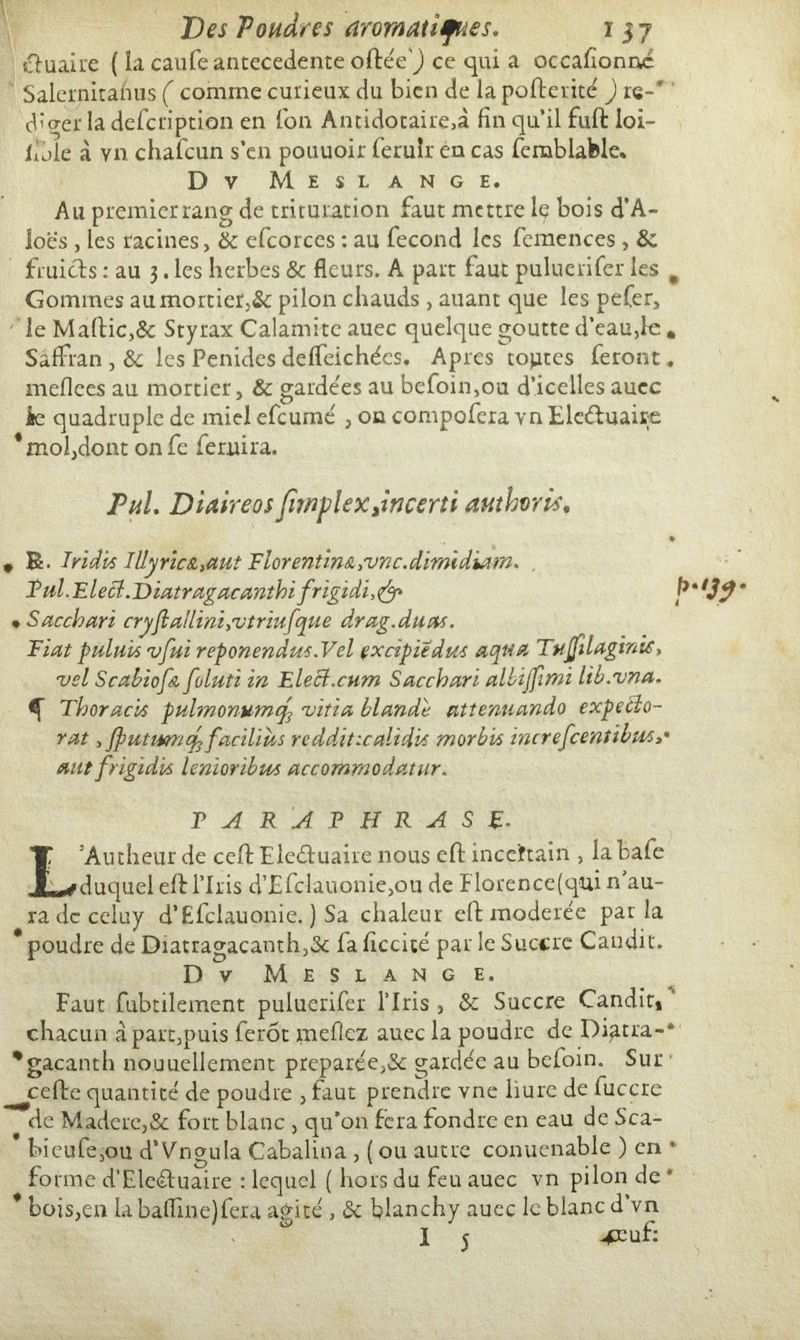 Des Poudres aromatiques. 137
ctuaire (la cauſe antecedente oſtée) ce qui a occaſionné
Salernitanus (comme curieux du bien de la poſterité) re-
diger la deſcription en ſon Antidotaire,à fin qu'il fuſt loi-
ſible à vn chaſcun s'en pouuoir ſeruir en cas ſemblable.
DV MESLANGE.
Au premier rang de trituration faut mettre le bois d'A-
loës, les racines, & eſcorces : au ſecond les ſemences, &
fruicts : au 3. les herbes & fleurs. A part faut pulueriſer les
Gommes au mortier,& pilon chauds, auant que les peſer,
le Maſtic,& Styrax Calamite auec quelque goutte d'eau,le
Saffran, & les Penides deſſeichées. Apres toutes ſeront
meſlees au mortier, & gardées au beſoin,ou d'icelles auec
le quadruple de miel eſcumé, on compoſera vn Electuaire
mol,dont on ſe ſeruira.
Pul. Diaireos ſimplex,incerti authoris.
℞. Iridis Illyricæ,aut Florentinæ,vnc.dimidiam.
Pul.Elect.Diatragacanthi frigidi,& p.139.
Sacchari cryſtallini,vtriuſque drag.duas.
Fiat puluis vſui reponendus.Vel excipiēdus aqua Tuſſilaginis,
vel Scabioſæ ſoluti in Elect.cum Sacchari albiſſimi lib.vna.
¶ Thoracis pulmonumq; vitia blandè attenuando expecto-
rat, ſputumq; facilius reddit:calidis morbis increſcentibus,
aut frigidis lenioribus accommodatur.
PARAPHRASE.
L'Autheur de ceſt Electuaire nous eſt incertain, la baſe
duquel eſt l'Iris d'Eſclauonie,ou de Florence(qui n'au-
ra de celuy d'Eſclauonie.) Sa chaleur eſt moderée par la
poudre de Diatragacanth,& ſa ſiccité par le Succre Candit.
DV MESLANGE.
Faut ſubtilement puluerifer l'Iris, & Succre Candit,
chacun à part,puis ſerōt meſlez auec la poudre de Diatra-
gacanth nouuellement preparée,& gardée au beſoin. Sur
ceſte quantité de poudre, faut prendre vne liure de ſuccre
de Madere,& fort blanc, qu'on fera fondre en eau de Sca-
bieuſe,ou d'Vngula Cabalina, (ou autre conuenable) en
forme d'Electuaire : lequel (hors du feu auec vn pilon de
bois,en la baſſine)ſera agité, & blanchy auec le blanc d'vn
I 5 œuf: